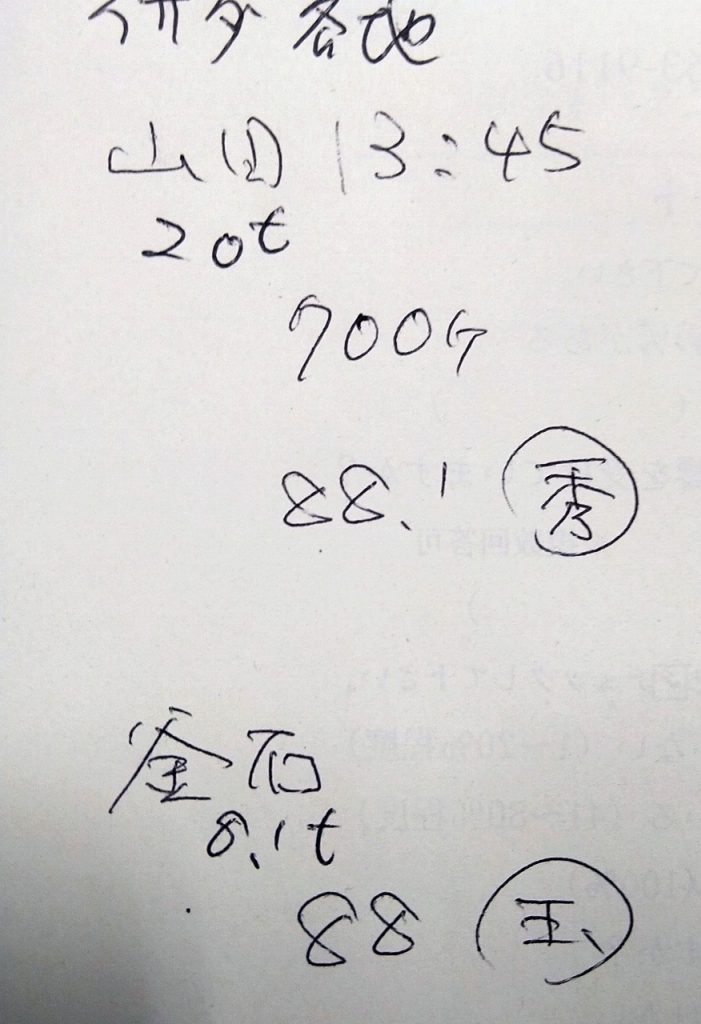 各地
山田 13:45
20t
700ケ
88.1 秀
釜石
8.1t
88 玉